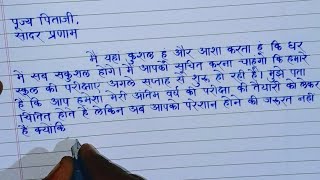 पूज्य पिताजी,
सादर प्रणाम
मै यहा कुशल हूं और आशा करता हूं कि घर
मे सब सकुशल होगे। मैं आपको सूचित करना चाहूंगा कि हमारे
स्कूल की परीक्षाए अगले सप्ताह से शुरू हो रही है। मुझे पता
है कि आप हमेशा मेरी अंतिम वर्ष की परीक्षा की तैयारी को लेकर
चिंतित होते है लेकिन अब आपको परेशान होने की जरूरत नही
है क्योकि